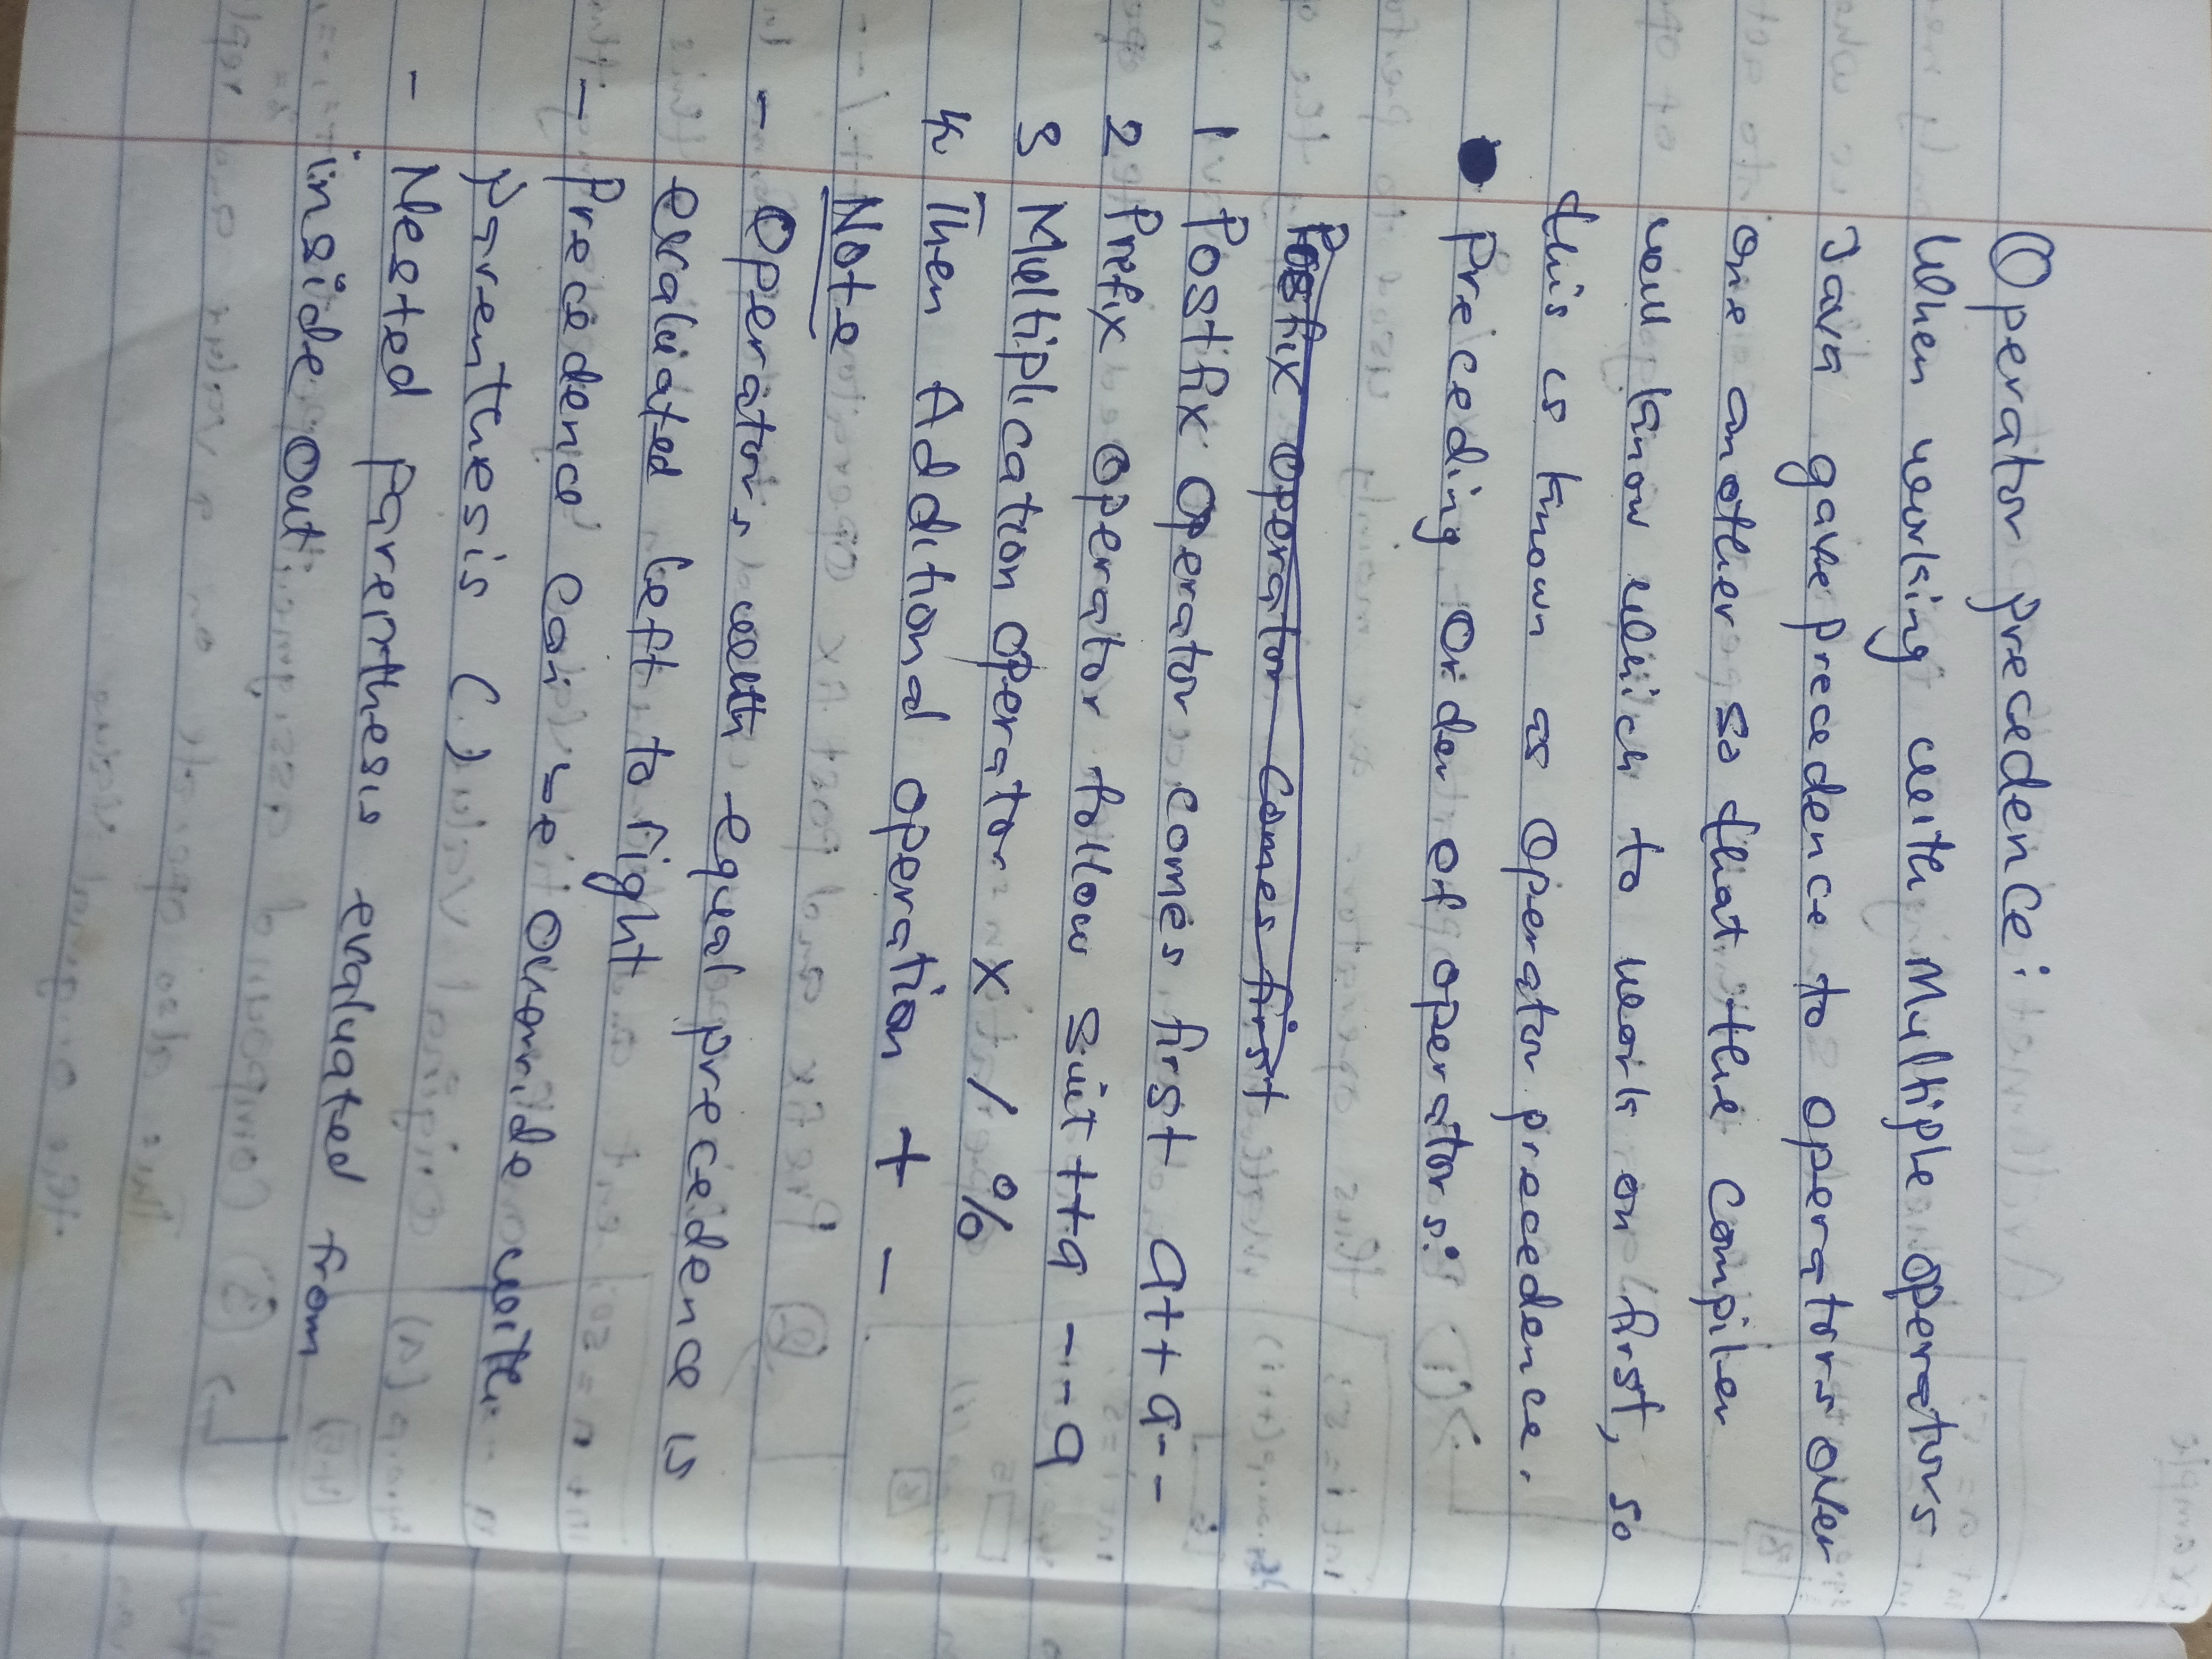 Operator precedence:
When working with Multiple operators
Java gave precedence to operators over
one another so that the compiler
will know which to work on first, so
this is known as operator precedence.
• Preceding order of operators:
Postfix operator comes first
1 Postfix operator comes first a++ a--
2 Prefix operator follow suit ++a --a
3 Multiplication operator x / %
4 Then Additional operation + -
Note
- Operators with equal precedence is
evaluated left to right
- Precedence can be override with
parenthesis ( )
- Nested parenthesis evaluated from
inside out